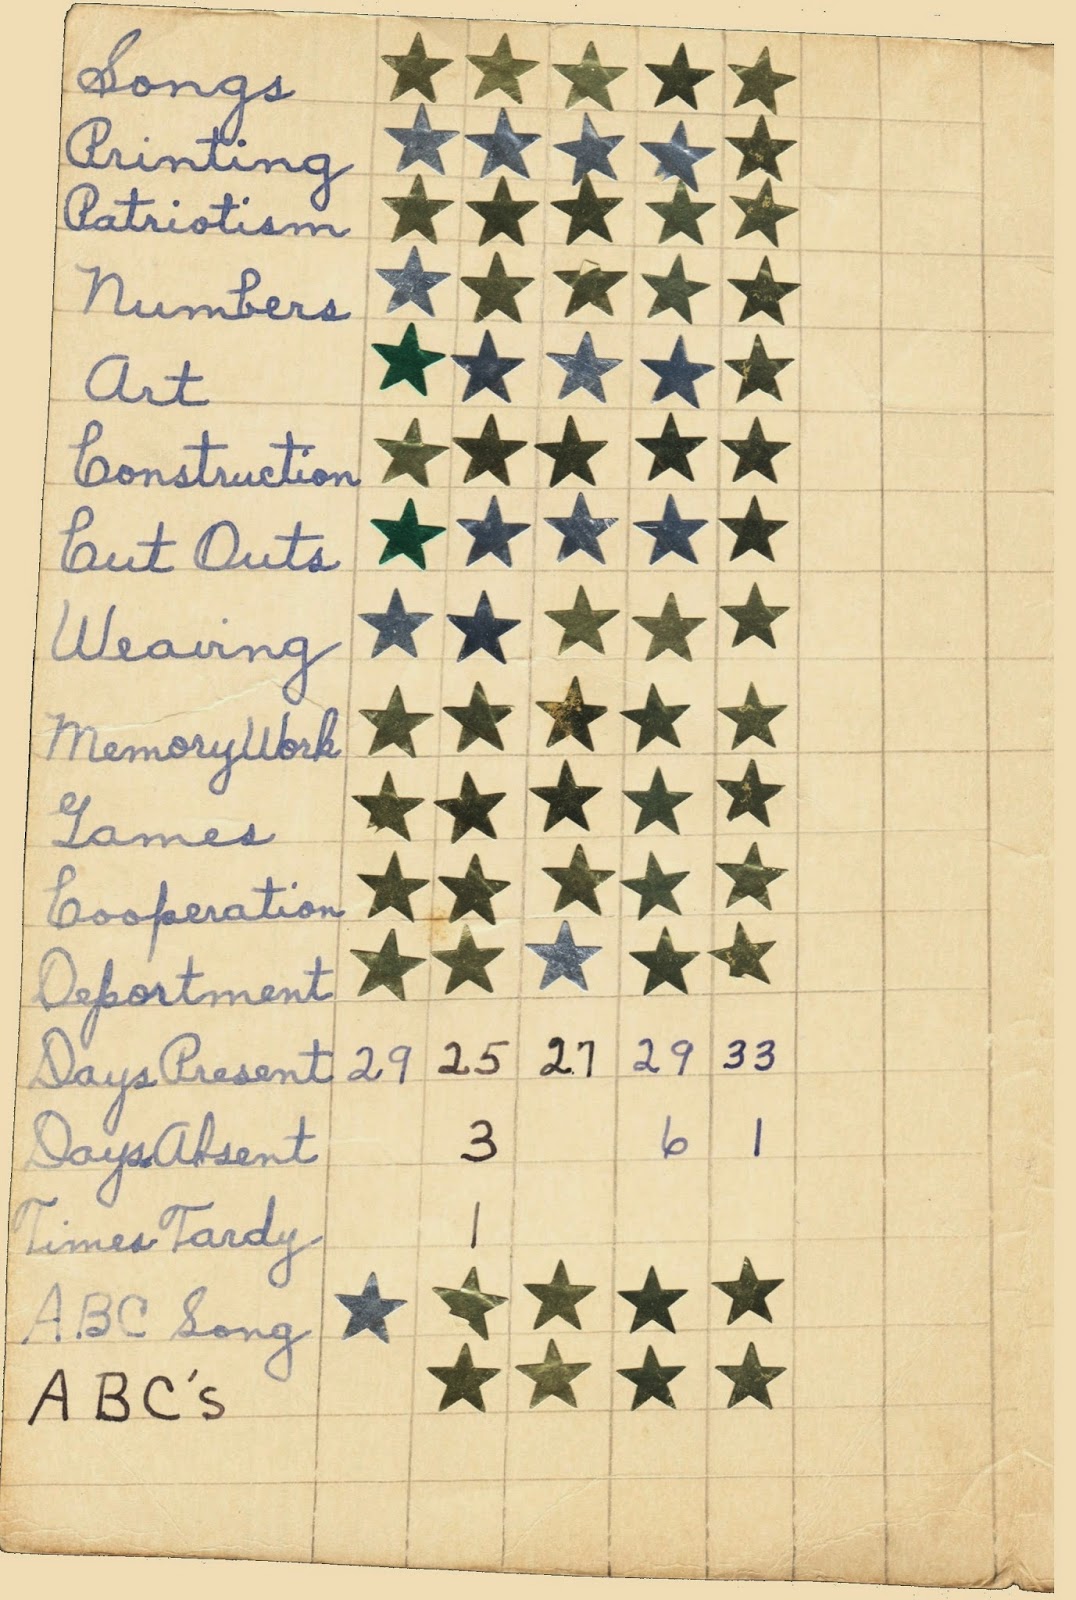 Songs
Printing
Patriotism
Numbers
Art
Construction
Cut Outs
Weaving
Memory Work
Games
Cooperation
Deportment
Days Present 29 25 27 29 33
Days Absent 3 6 1
Times Tardy 1
ABC Song
ABC's